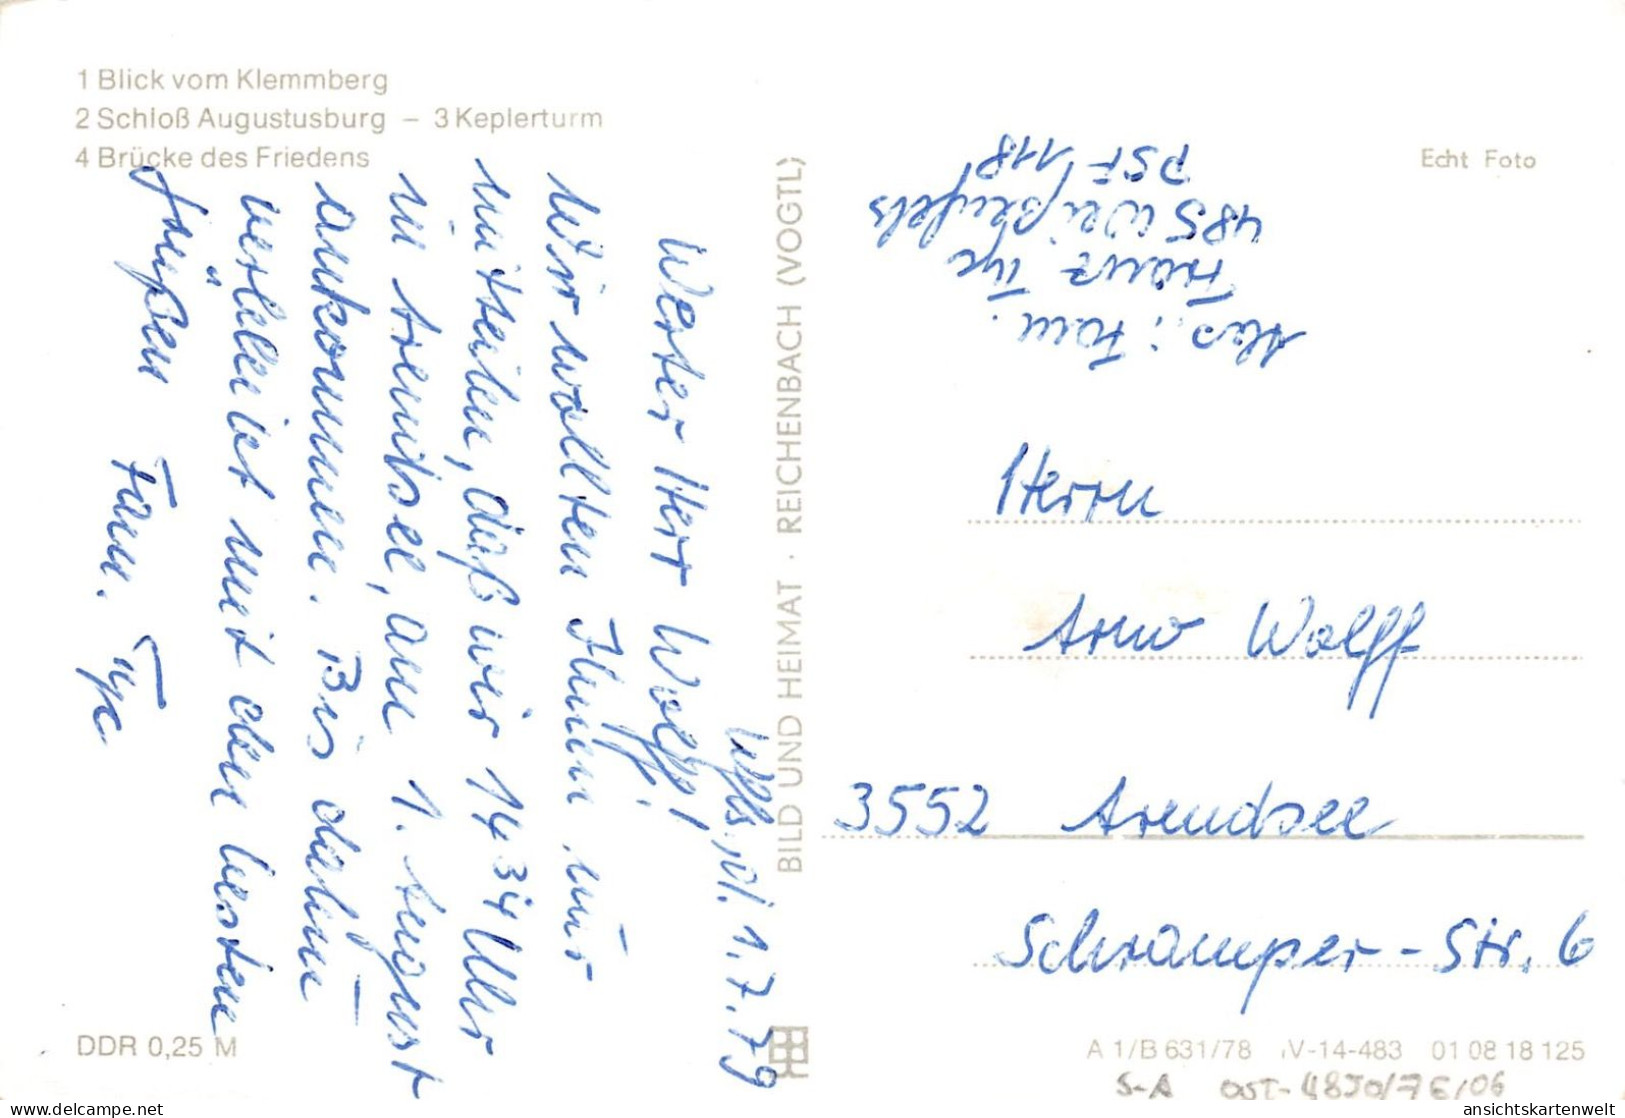 1 Blick vom Klemmberg
2 Schloß Augustusburg – 3 Keplerturm
4 Brücke des Friedens
Wfls., d. 1.7.79
Werter Herr Wolff!
Wir wollten Ihnen nur
mitteilen, daß wir 14 34 Uhr
in Arendsee, am 1. August
ankommen. Bis dahin
verbleibt mit den besten
Grüßen Fam.
BILD UND HEIMAT · REICHENBACH (VOGTL)
Echt Foto
Abs.: Fam.
Franz
485 Weißenfels
PSF 118
Herrn
Arno Wolff
3552 Arendsee
Schramper-Str. 6
DDR 0,25 M
A 1/B 631/78 IV-14-483 01 08 18 125
S-A
ansichtskartenwelt